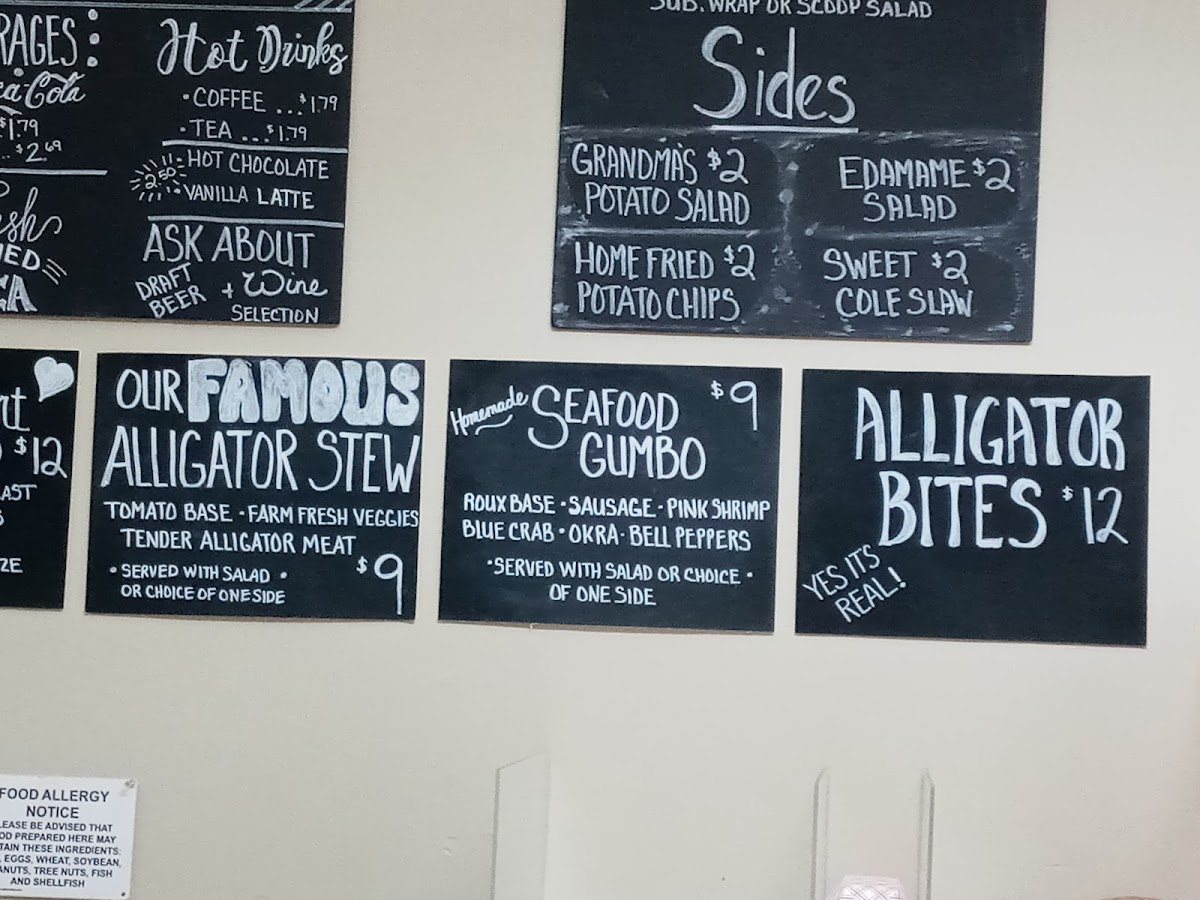 Hot Drinks
• COFFEE ... $1.79
• TEA ... $1.79
2.50
HOT CHOCOLATE
VANILLA LATTE
ASK ABOUT
DRAFT
BEER
+ Wine
SELECTION
$1.79
.. $2.69
SUB, WRAP OR SCOOP SALAD
Sides
GRANDMA'S $2
POTATO SALAD
EDAMAME $2
SALAD
HOME FRIED $2
POTATO CHIPS
SWEET $2
COLE SLAW
$12
OUR FAMOUS
ALLIGATOR STEW
TOMATO BASE • FARM FRESH VEGGIES
TENDER ALLIGATOR MEAT
• SERVED WITH SALAD •
OR CHOICE OF ONE SIDE
$9
Homemade SEAFOOD
GUMBO
$9
ROUX BASE • SAUSAGE • PINK SHRIMP
BLUE CRAB • OKRA • BELL PEPPERS
• SERVED WITH SALAD OR CHOICE •
OF ONE SIDE
ALLIGATOR
BITES $12
YES IT'S
REAL!
FOOD ALLERGY
NOTICE
LEASE BE ADVISED THAT
OD PREPARED HERE MAY
TAIN THESE INGREDIENTS:
, EGGS, WHEAT, SOYBEAN,
ANUTS, TREE NUTS, FISH
AND SHELLFISH